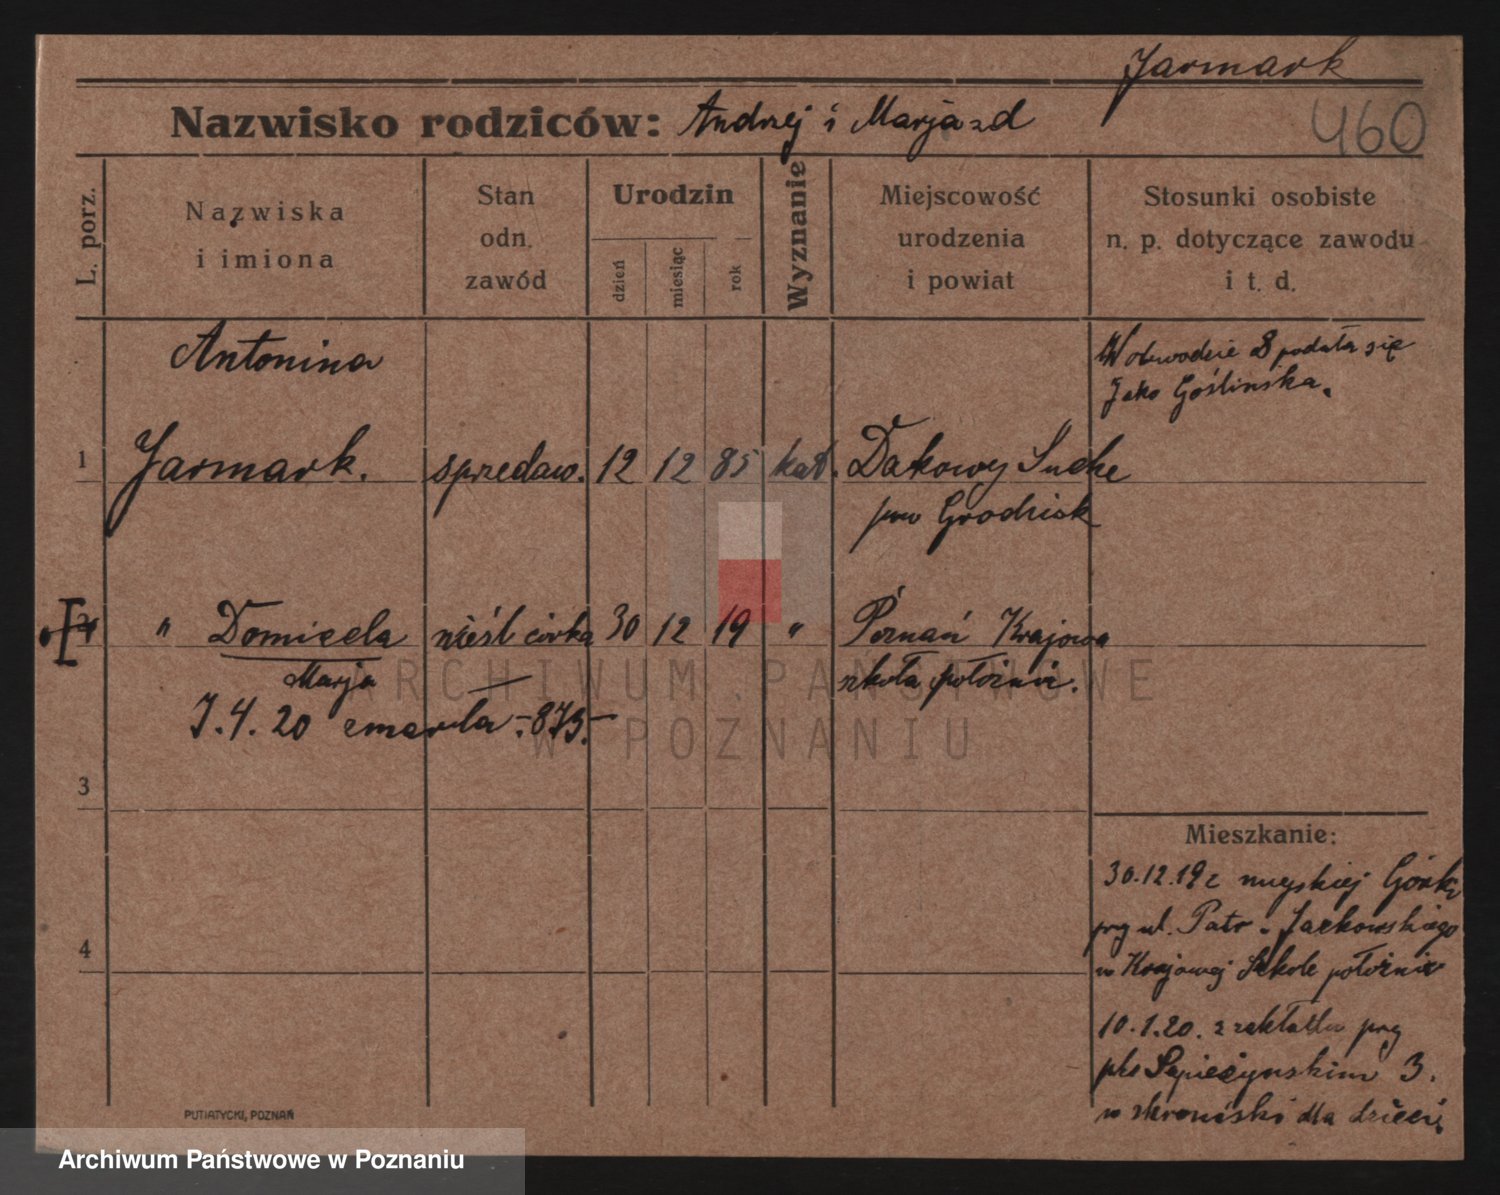 Jarmark
460
Nazwisko rodziców: Andrzej i Marja zd
L. porz.
Nazwiska
i imiona
Stan
odn.
zawód
Urodzin
dzień
miesiąc
rok
Wyznanie
Miejscowość
urodzenia
i powiat
Stosunki osobiste
n. p. dotyczące zawodu
i t. d.
W obwodzie 8 podała się
Jako Goślinska.
Antonina
1 Jarmark. sprzedaw. 12 12 85 kat. Dakowy Suche
pow Grodzisk
2 " Domicela nieśl córka 30 12 19 " Poznań Krajowa
Marja szkoła położnic.
7.4.20 zmarła -873-
3
4
Mieszkanie:
30.12.19 z miejskiej Górki
prg ul. Patr. Jackowskiego
w Krajowej Szkole położnic
10.1.20. z zakładu prg
plac Sapieżynskim 3.
w schronisku dla dzieci
PUTIATYCKI, POZNAŃ
ARCHIWUM PAŃSTWOWE
W POZNANIU
Archiwum Państwowe w Poznaniu